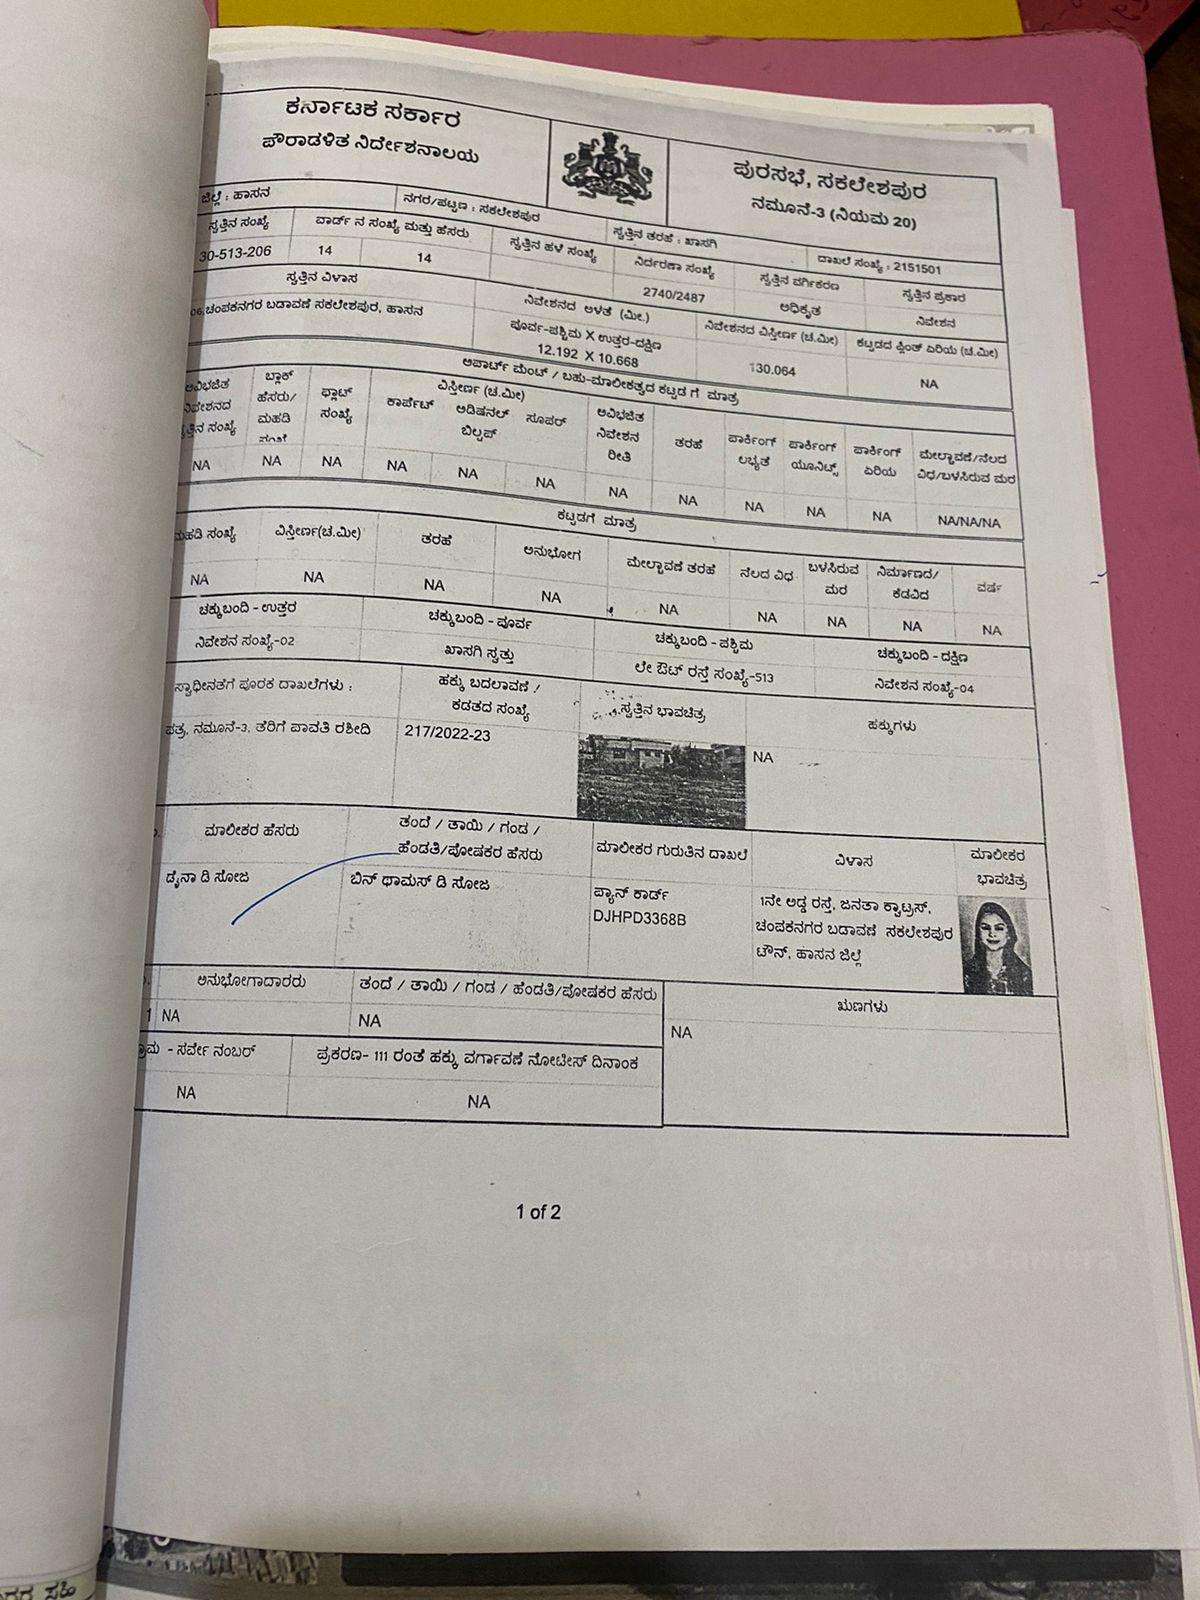 ಕರ್ನಾಟಕ ಸರ್ಕಾರ
ಪೌರಾಡಳಿತ ನಿರ್ದೇಶನಾಲಯ
ಪುರಸಭೆ, ಸಕಲೇಶಪುರ
ನಮೂನೆ-3 (ನಿಯಮ 20)
ಜಿಲ್ಲೆ : ಹಾಸನ
ನಗರ/ಪಟ್ಟಣ : ಸಕಲೇಶಪುರ
ಸ್ವತ್ತಿನ ತರಹೆ : ಖಾಸಗಿ
ದಾಖಲೆ ಸಂಖ್ಯೆ : 2151501
ಸ್ವತ್ತಿನ ಸಂಖ್ಯೆ
ವಾರ್ಡ್ ನ ಸಂಖ್ಯೆ ಮತ್ತು ಹೆಸರು
ಸ್ವತ್ತಿನ ಹಳೆ ಸಂಖ್ಯೆ
ನಿರ್ದರಣಾ ಸಂಖ್ಯೆ
ಸ್ವತ್ತಿನ ವರ್ಗಿಕರಣ
ಸ್ವತ್ತಿನ ಪ್ರಕಾರ
30-513-206
14
14
2740/2487
ಅಧಿಕೃತ
ನಿವೇಶನ
ಸ್ವತ್ತಿನ ವಿಳಾಸ
ನಿವೇಶನದ ಅಳತೆ (ಮೀ.)
ನಿವೇಶನದ ವಿಸ್ತೀರ್ಣ (ಚ.ಮೀ)
ಕಟ್ಟಡದ ಪ್ಲಿಂತ್ ಏರಿಯ (ಚ.ಮೀ)
06,ಚಂಪಕನಗರ ಬಡಾವಣೆ ಸಕಲೇಶಪುರ, ಹಾಸನ
ಪೂರ್ವ-ಪಶ್ಚಿಮ X ಉತ್ತರ-ದಕ್ಷಿಣ
12.192 X 10.668
130.064
NA
ಅಪಾರ್ಟ್ ಮೆಂಟ್ / ಬಹು-ಮಾಲೀಕತ್ವದ ಕಟ್ಟಡ ಗೆ ಮಾತ್ರ
ಅವಿಭಜಿತ
ನಿವೇಶನದ
ಸ್ವತ್ತಿನ ಸಂಖ್ಯೆ
ಬ್ಲಾಕ್
ಹೆಸರು/
ಮಹಡಿ
ಸಂಖ್ಯೆ
ಫ್ಲಾಟ್
ಸಂಖ್ಯೆ
ವಿಸ್ತೀರ್ಣ (ಚ.ಮೀ)
ಕಾರ್ಪೆಟ್
ಅಡಿಷನಲ್
ಬಿಲ್ಟಪ್
ಸೂಪರ್
ಅವಿಭಜಿತ
ನಿವೇಶನ
ರೀತಿ
ತರಹೆ
ಪಾರ್ಕಿಂಗ್
ಲಭ್ಯತೆ
ಪಾರ್ಕಿಂಗ್
ಯೂನಿಟ್ಸ್
ಪಾರ್ಕಿಂಗ್
ಏರಿಯ
ಮೇಲ್ಛಾವಣೆ/ನೆಲದ
ವಿಧ/ಬಳಸಿರುವ ಮರ
NA NA NA NA NA NA NA NA NA NA NA NA/NA/NA
ಕಟ್ಟಡಗೆ ಮಾತ್ರ
ಮಹಡಿ ಸಂಖ್ಯೆ
ವಿಸ್ತೀರ್ಣ(ಚ.ಮೀ)
ತರಹೆ
ಅನುಭೋಗ
ಮೇಲ್ಛಾವಣೆ ತರಹೆ
ನೆಲದ ವಿಧ
ಬಳಸಿರುವ
ಮರ
ನಿರ್ಮಾಣದ/
ಕೆಡವಿದ
ವರ್ಷ
NA NA NA NA NA NA NA NA NA
ಚಕ್ಕುಬಂದಿ - ಉತ್ತರ
ಚಕ್ಕುಬಂದಿ - ಪೂರ್ವ
ಚಕ್ಕುಬಂದಿ - ಪಶ್ಚಿಮ
ಚಕ್ಕುಬಂದಿ - ದಕ್ಷಿಣ
ನಿವೇಶನ ಸಂಖ್ಯೆ-02
ಖಾಸಗಿ ಸ್ವತ್ತು
ಲೇ ಔಟ್ ರಸ್ತೆ ಸಂಖ್ಯೆ-513
ನಿವೇಶನ ಸಂಖ್ಯೆ-04
ಸ್ವಾಧೀನತೆಗೆ ಪೂರಕ ದಾಖಲೆಗಳು :
ಹಕ್ಕು ಬದಲಾವಣೆ /
ಕಡತದ ಸಂಖ್ಯೆ
ಸ್ವತ್ತಿನ ಭಾವಚಿತ್ರ
ಹಕ್ಕುಗಳು
ಪತ್ರ, ನಮೂನೆ-3, ತೆರಿಗೆ ಪಾವತಿ ರಶೀದಿ
217/2022-23
NA
ಮಾಲೀಕರ ಹೆಸರು
ತಂದೆ / ತಾಯಿ / ಗಂಡ /
ಹೆಂಡತಿ/ಪೋಷಕರ ಹೆಸರು
ಮಾಲೀಕರ ಗುರುತಿನ ದಾಖಲೆ
ವಿಳಾಸ
ಮಾಲೀಕರ
ಭಾವಚಿತ್ರ
ಡೈನಾ ಡಿ ಸೋಜ
ಬಿನ್ ಥಾಮಸ್ ಡಿ ಸೋಜ
ಪ್ಯಾನ್ ಕಾರ್ಡ್
DJHPD3368B
1ನೇ ಅಡ್ಡ ರಸ್ತೆ, ಜನತಾ ಕ್ವಾಟ್ರಸ್,
ಚಂಪಕನಗರ ಬಡಾವಣೆ ಸಕಲೇಶಪುರ
ಟೌನ್, ಹಾಸನ ಜಿಲ್ಲೆ
ಅನುಭೋಗಾದಾರರು
ತಂದೆ / ತಾಯಿ / ಗಂಡ / ಹೆಂಡತಿ/ಪೋಷಕರ ಹೆಸರು
ಋಣಗಳು
1 NA
NA
NA
- ಸರ್ವೇ ನಂಬರ್
ಪ್ರಕರಣ- 111 ರಂತೆ ಹಕ್ಕು ವರ್ಗಾವಣೆ ನೋಟೀಸ್ ದಿನಾಂಕ
NA
NA
1 of 2